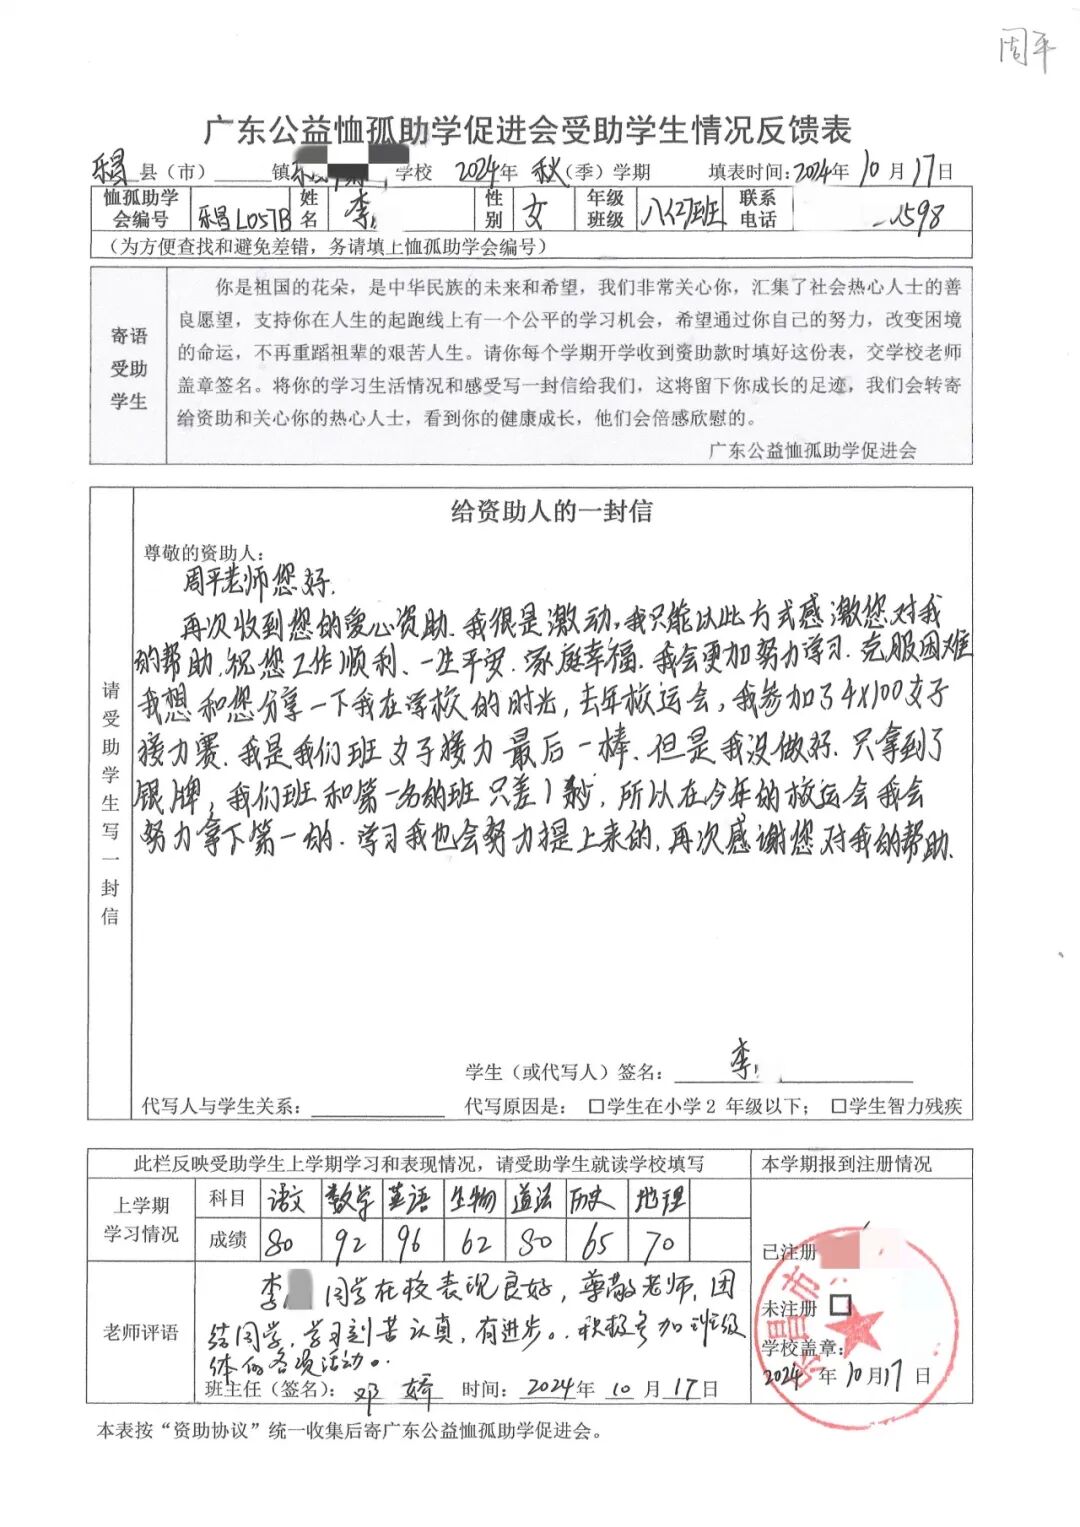 周平
广东公益恤孤助学促进会受助学生情况反馈表
乐昌县（市）______镇 学校 2024年 秋（季）学期 填表时间:2024年 10月17日
恤孤助学会编号 乐昌L057B 姓名 李 性别 女 年级班级 八(2)班 联系电话 1598
（为方便查找和避免差错，务请填上恤孤助学会编号）
寄语受助学生
你是祖国的花朵，是中华民族的未来和希望，我们非常关心你，汇集了社会热心人士的善
良愿望，支持你在人生的起跑线上有一个公平的学习机会，希望通过你自己的努力，改变困境
的命运，不再重蹈祖辈的艰苦人生。请你每个学期开学收到资助款时填好这份表，交学校老师
盖章签名。将你的学习生活情况和感受写一封信给我们，这将留下你成长的足迹，我们会转寄
给资助和关心你的热心人士，看到你的健康成长，他们会倍感欣慰的。
广东公益恤孤助学促进会
请受助学生写一封信
给资助人的一封信
尊敬的资助人：
周平老师您好.
再次收到您的爱心资助.我很是激动,我只能以此方式感激您对我
的帮助.祝您工作顺利、一生平安.家庭幸福.我会更加努力学习.克服困难
我想和您分享一下我在学校的时光,去年校运会,我参加了4x100女子
接力赛.我是我们班女子接力最后一棒.但是我没做好.只拿到了
银牌,我们班和第一名的班只差1秒,所以在今年的校运会我会
努力拿下第一的.学习我也会努力提上来的,再次感谢您对我的帮助.
学生（或代写人）签名：李
代写人与学生关系：____________ 代写原因是： □学生在小学2 年级以下； □学生智力残疾
此栏反映受助学生上学期学习和表现情况，请受助学生就读学校填写 本学期报到注册情况
上学期学习情况
科目 语文 数学 英语 生物 道法 历史 地理
成绩 80 92 96 62 80 65 70
老师评语
李 同学在校表现良好，尊敬老师，团
结同学，学习刻苦认真，有进步。积极参加班级
体的各项活动。
班主任（签名）：邓 娇 时间：2024年 10月17日
已注册
未注册 □
学校盖章：
2024年10月17日
乐昌市
本表按“资助协议”统一收集后寄广东公益恤孤助学促进会。